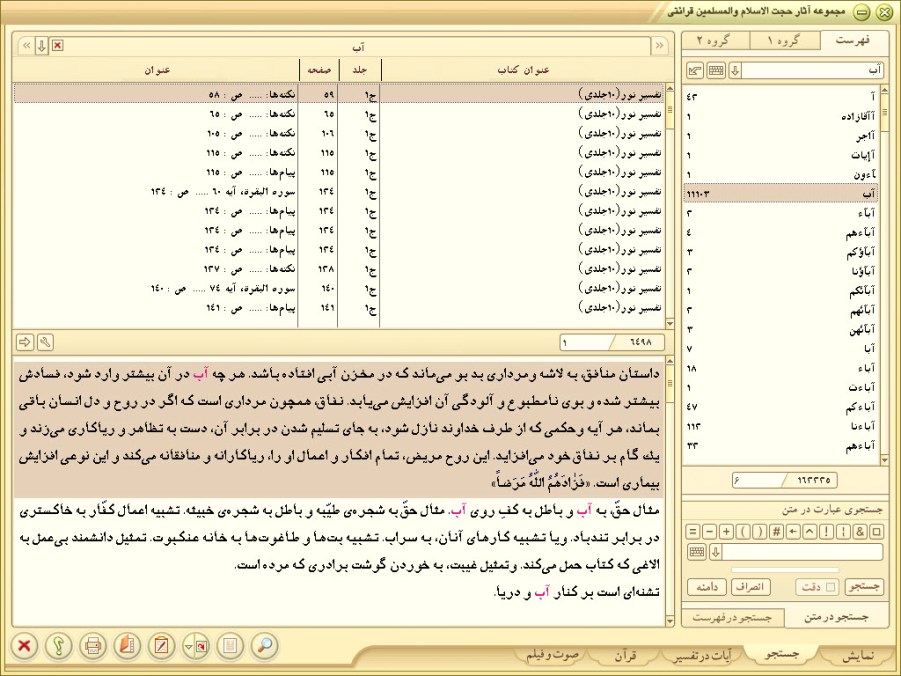 مجموعه آثار حجت الاسلام والمسلمین قرائتی
فهرست
گروه ۱
گروه ۲
آب
آ ۴۳
آآقازاده ۱
آاجر ۱
آإیات ۱
آءون ۱
آب ۱۱۱۰۳
آبآء ۲
آبآءهم ۴
آبآؤکم ۳
آبآؤنا ۲
آبآئکم ۱
آبآئهم ۲
آبآئهن ۳
آبا ۷
آباء ۱۸
آباءت ۱
آباءکم ۴۷
آباءنا ۱۱۳
آباءهم ۳۳
۶ / ۱۶۲۲۲۵
جستجوی عبارت در متن
= − + ( ) # ← ^ ! ¦ & □
جستجو
دقت
انصراف
دامنه
جستجو در متن
جستجو در فهرست
آب
عنوان کتاب
جلد
صفحه
عنوان
تفسیر نور(۱۰جلدی) ج۱ ۵۹ نکته‌ها: ..... ص : ۵۸
تفسیر نور(۱۰جلدی) ج۱ ۶۵ نکته‌ها: ..... ص : ۶۵
تفسیر نور(۱۰جلدی) ج۱ ۱۰۶ نکته‌ها: ..... ص : ۱۰۵
تفسیر نور(۱۰جلدی) ج۱ ۱۱۵ نکته‌ها: ..... ص : ۱۱۵
تفسیر نور(۱۰جلدی) ج۱ ۱۱۵ پیام‌ها: ..... ص : ۱۱۵
تفسیر نور(۱۰جلدی) ج۱ ۱۲۴ سوره البقرة، آیه ۶۰ ..... ص : ۱۲۴
تفسیر نور(۱۰جلدی) ج۱ ۱۲۴ پیام‌ها: ..... ص : ۱۲۴
تفسیر نور(۱۰جلدی) ج۱ ۱۲۴ پیام‌ها: ..... ص : ۱۲۴
تفسیر نور(۱۰جلدی) ج۱ ۱۲۴ پیام‌ها: ..... ص : ۱۲۴
تفسیر نور(۱۰جلدی) ج۱ ۱۲۸ نکته‌ها: ..... ص : ۱۲۷
تفسیر نور(۱۰جلدی) ج۱ ۱۴۰ سوره البقرة، آیه ۷۴ ..... ص : ۱۴۰
تفسیر نور(۱۰جلدی) ج۱ ۱۴۱ پیام‌ها: ..... ص : ۱۴۱
۱ / ۶۴۹۸
داستان منافق، به لاشه ومرداری بد بو می‌ماند که در مخزن آبی افتاده باشد. هر چه آب در آن بیشتر وارد شود، فسادش
بیشتر شده و بوی نامطبوع و آلودگی آن افزایش می‌یابد. نفاق، همچون مرداری است که اگر در روح و دل انسان باقی
بماند، هر آیه وحکمی که از طرف خداوند نازل شود، به جای تسلیم شدن در برابر آن، دست به تظاهر و ریاکاری می‌زند و
یك گام بر نفاق خود می‌افزاید. این روح مریض، تمام افکار و اعمال او را، ریاکارانه و منافقانه می‌کند و این نوعی افزایش
بیماری است. «فَزٰادَهُمُ اللّٰهُ مَرَضاً»
مثال حقّ، به آب و باطل به کفِ روی آب. مثال حقّ به شجره‌ی طیّبه و باطل به شجره‌ی خبیثه. تشبیه اعمال کفّار به خاکستری
در برابر تندباد. ویا تشبیه کارهای آنان، به سراب. تشبیه بت‌ها و طاغوت‌ها به خانه عنکبوت. تمثیل دانشمند بی‌عمل به
الاغی که کتاب حمل می‌کند. وتمثیل غیبت، به خوردن گوشت برادری که مرده است.
تشنه‌ای است بر کنار آب و دریا.
نمایش
جستجو
آیات در تفسیر
قرآن
صوت و فیلم